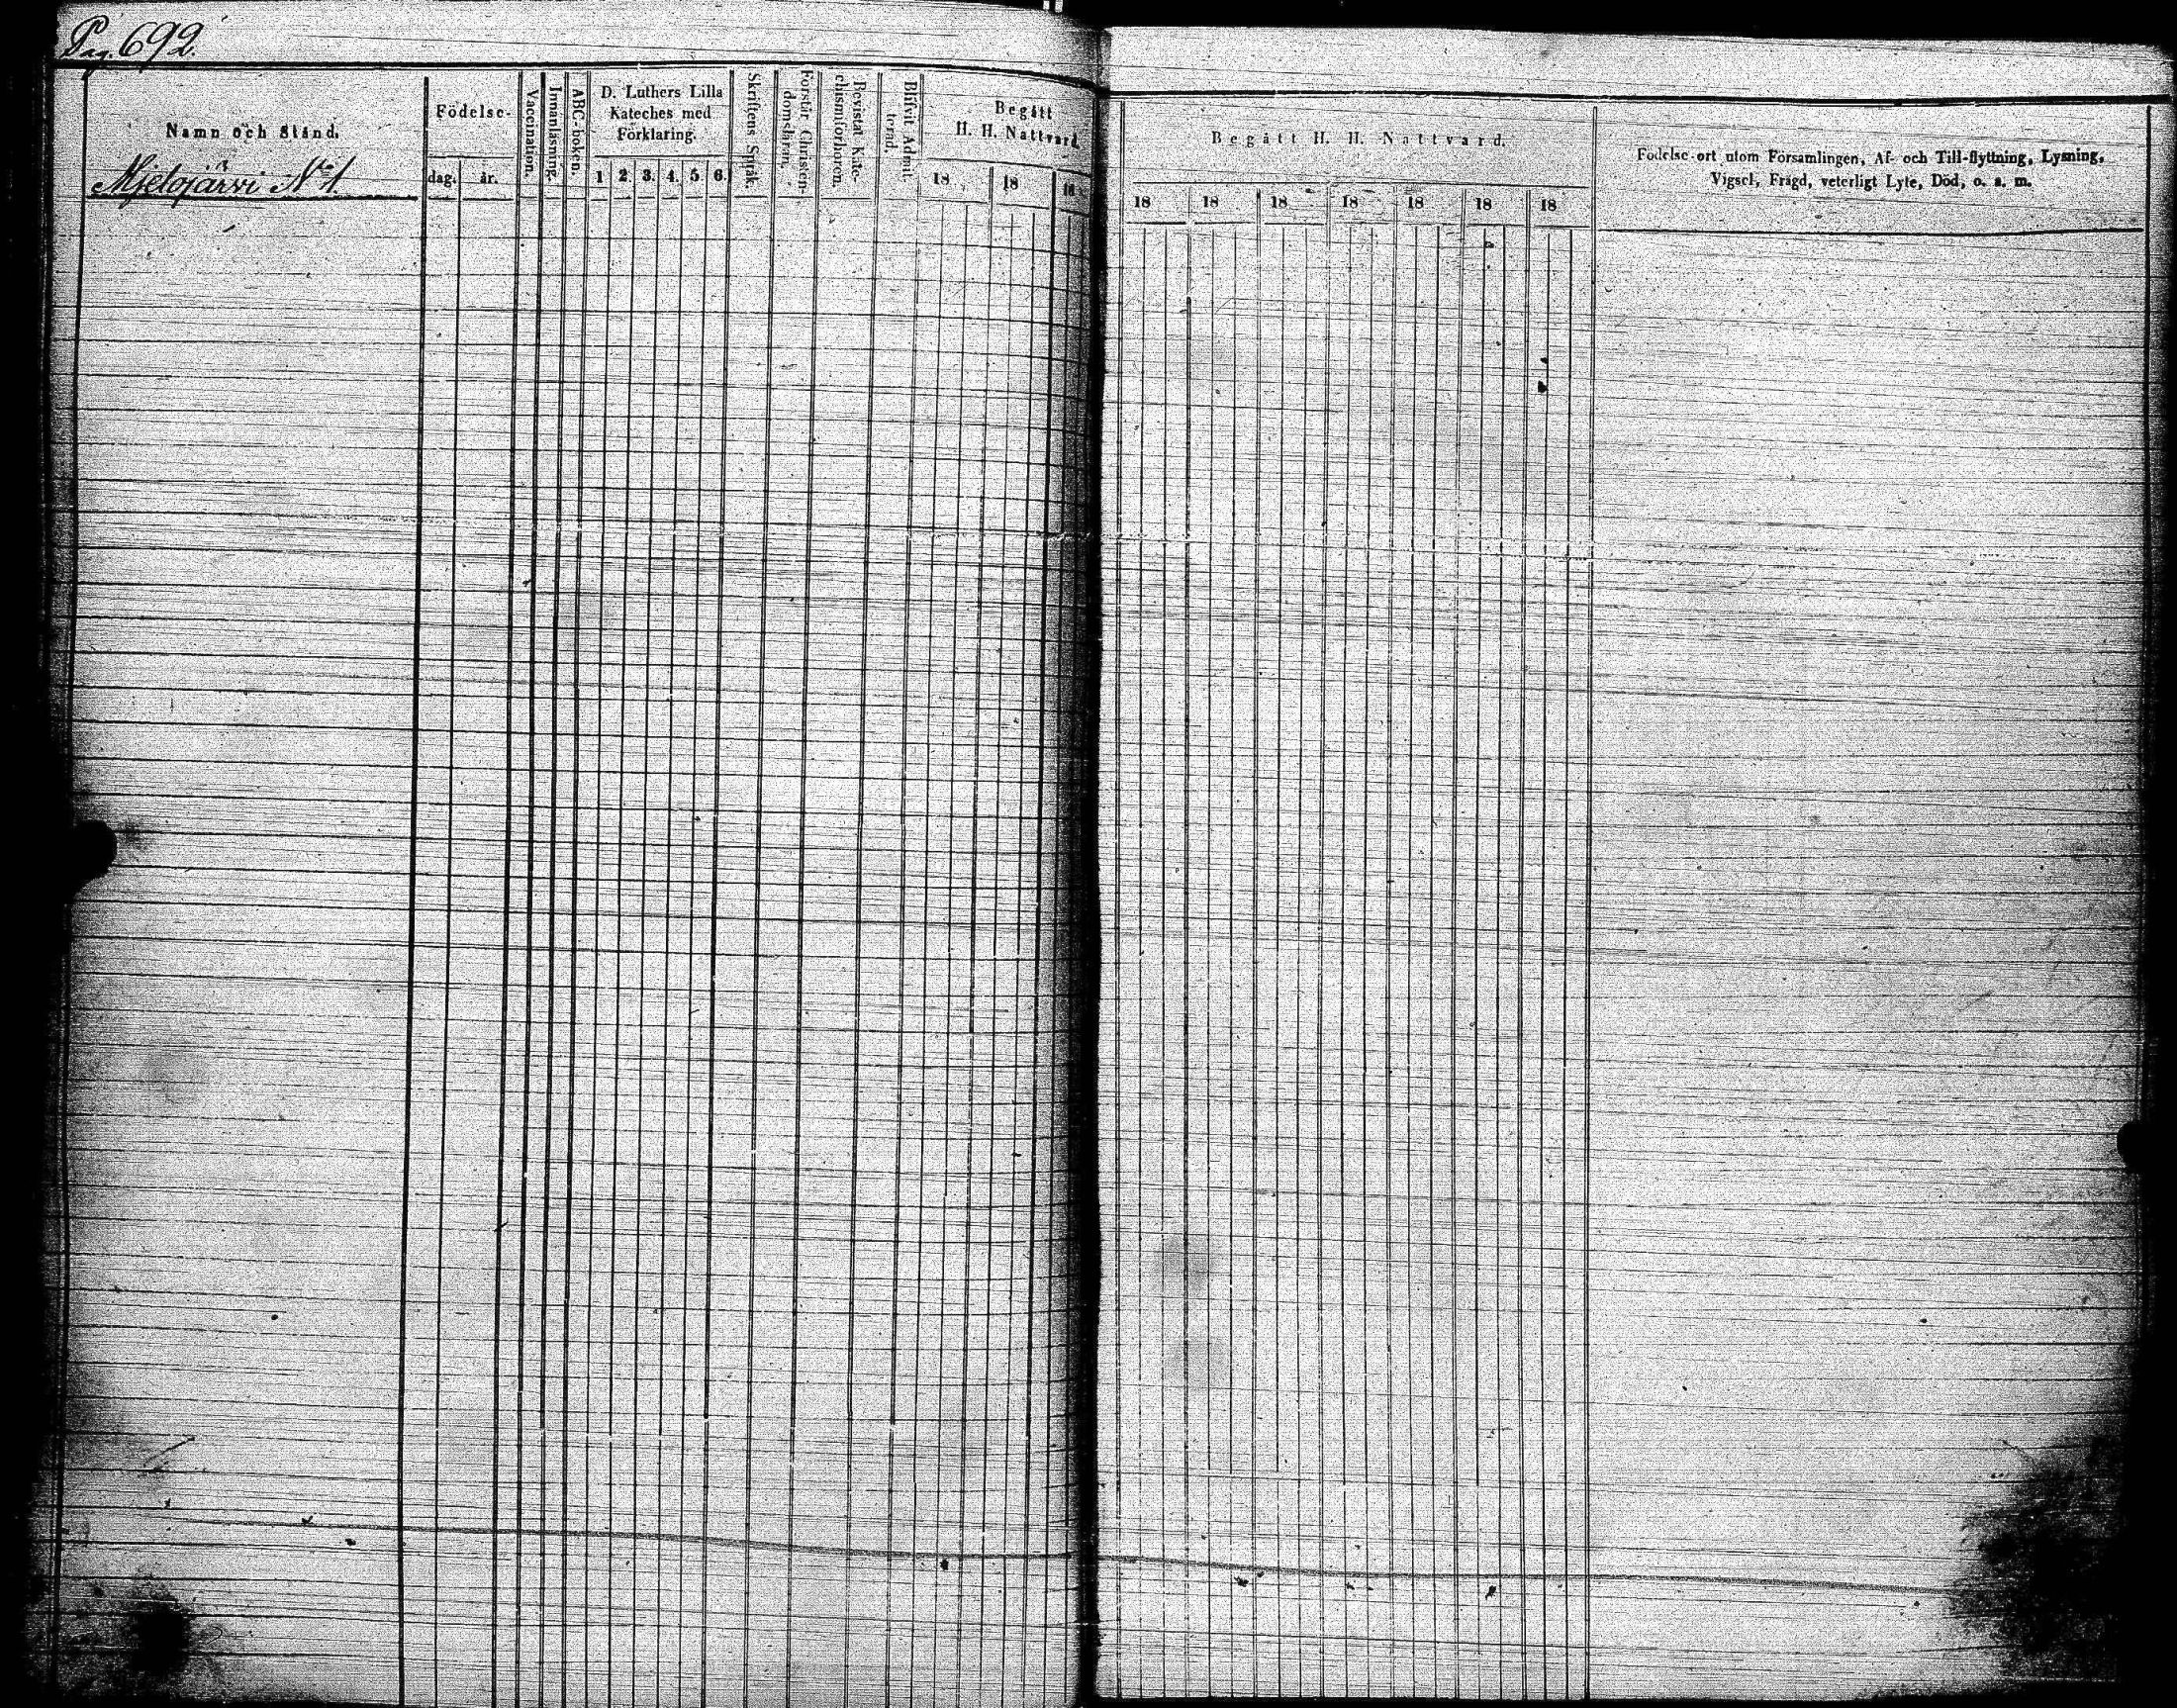 Pag. 692.
Namn och Stånd.
Mjelojärvi No 1.
Födelse-
dag. år.
Vaccination.
Innanläsning.
ABC-boken.
D. Luthers Lilla
Kateches med
Förklaring.
1 2. 3. 4. 5. 6.
Skriftens Språk.
Förstår Christen-
domsläran.
Bevistat Kate-
chismiförhören.
Blifvit Admit-
terad.
Begått
H. H. Nattvard.
18 18 18
Begått H. H. Nattvard.
18 18 18 18 18 18 18
Födelse-ort utom Församlingen, Af- och Till-flyttning, Lysning,
Vigsel, Frägd, veterligt Lyte, Död, o. s. m.